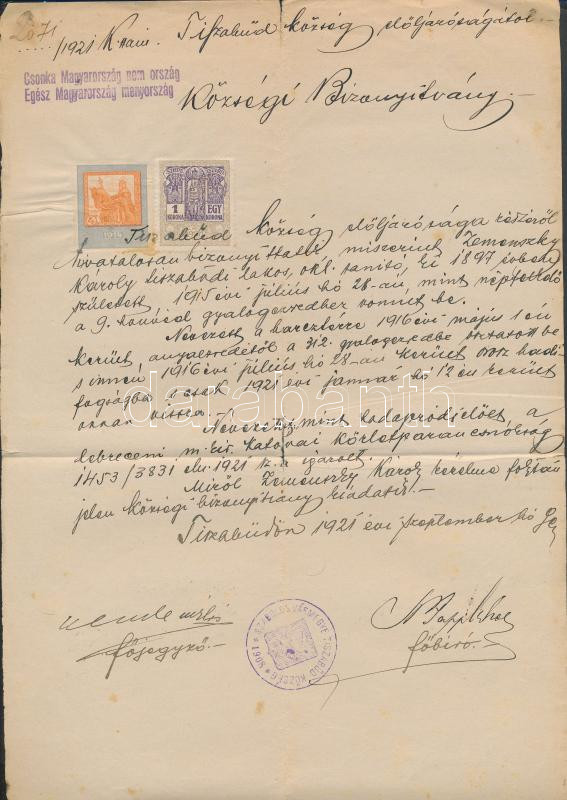 2071
/1921 Kttain. Tiszabüd község elöljáróságától.
Csonka Magyarország nem ország
Egész Magyarország menyország
Községi Bizonyitvány.-
1914
1 EGY
KORONA KORONA
Tiszabüd község elöljárósága részéről
hivatalosan bizonyittatik miszerint Zemenszky
Károly tiszabüdi lakos, okl. tanitó, ki 1897 évben
született 1915 évi július hó 28-án, mint népfelkelő
a 9. honvéd gyalogezredhez vonult be.
Nevezett a harcztérre 1916 évi május 1 én
került, anyaezredétől a 312. gyalogezredbe osztatott be
s innen 1916 évi július hó 28-án került orosz hadi
fogságba s csak 1921 évi január hó 12 én került
onnan vissza.-
Nevezett mint hadapródjelölt, a
debreceni m. kir. katonai körletparancsnokság
1453/3831 eln. 1921 sz. a. igazolt.
Miről Zemenszky Károly kérelme folytán
jelen községi bizonyitvány kiadatik.-
Tiszabüdön 1921 évi szeptember hó
főjegyző.-
főbiró.-
SZABOLCS VÁRMEGYE TISZABÜD KÖZSÉG * 1906 *
darabanth